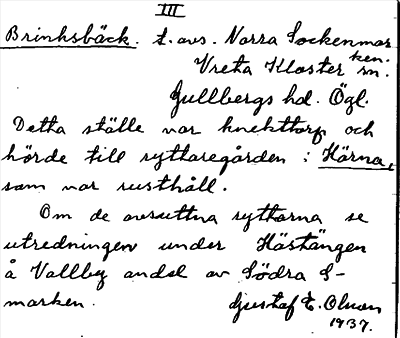 III
Brinksbäck. t. avs. Norra Sockenmar
ken.
Vreta Kloster sn.
Gullbergs hd. Ögl.
Detta ställe var knekttorp och
hörde till ryttaregården: Kärna,
som var rusthåll.
Om de avsuttna ryttarna se
utredningen under Hästängen
å Vallby andel av Södra S-
marken.
Gustaf E. Olson
1937.